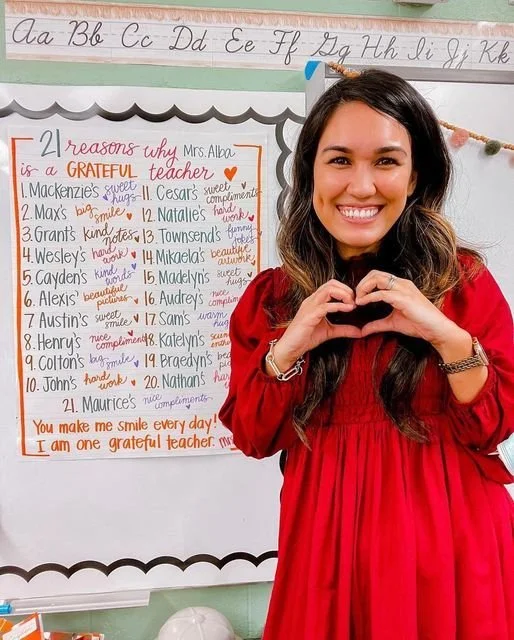 Aa Bb Cc Dd Ee Ff Gg Hh Ii Jj Kk
21 reasons why Mrs. Alba
is a GRATEFUL teacher
1. Mackenzie's sweet hugs
2. Max's big smile
3. Grant's kind notes
4. Wesley's hard work
5. Cayden's kind words
6. Alexis' beautiful pictures
7. Austin's sweet smile
8. Henry's nice compliments
9. Colton's big smile
10. John's hard work
11. Cesar's sweet compliments
12. Natalie's hard work
13. Townsend's funny jokes
14. Mikaela's beautiful artwork
15. Madelyn's sweet hugs
16. Audrey's nice
17. Sam's warm
18. Katelyn's
19. Braedyn's
20. Nathan's
21. Maurice's nice compliments
You make me smile every day!
I am one grateful teacher.